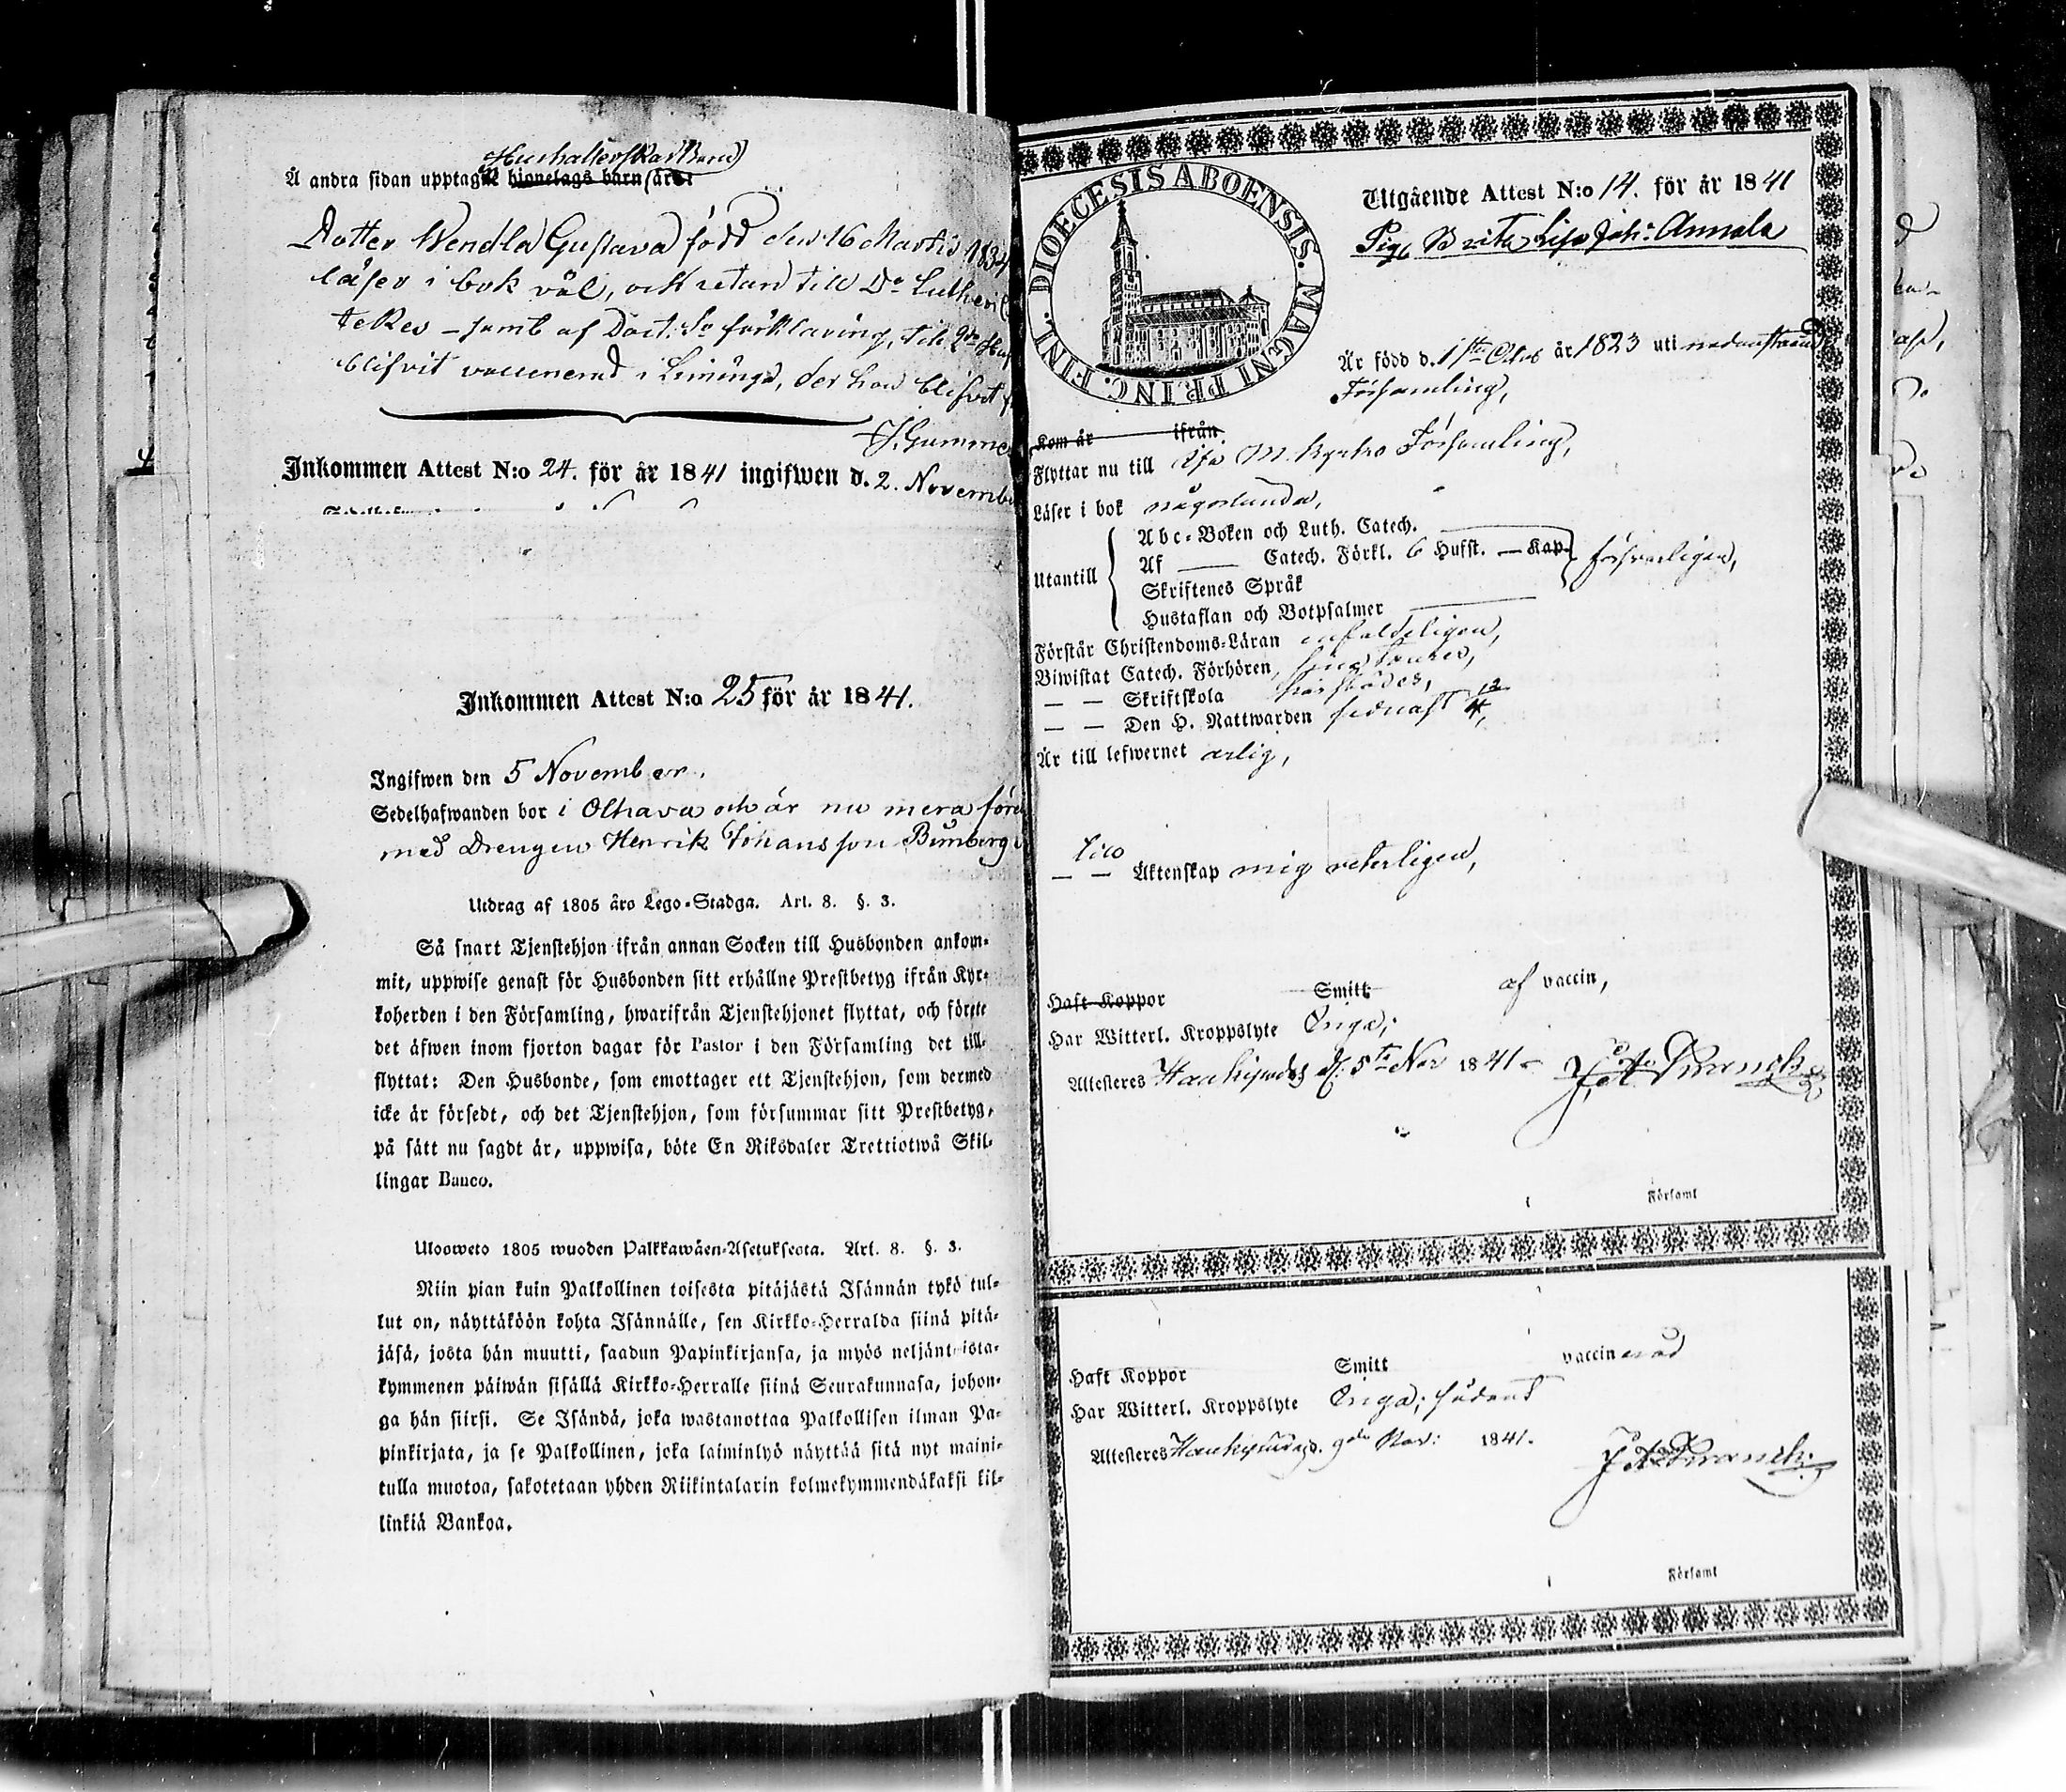 Hushållerskas Barn
Å andra sidan upptagne hionelags barn äro:
Dotter Wendla Gustava född den 16 Martii 1834
läser i bok väl, och utan till Dr Lutheri
tekes – samt af Doct. Sv. förklaring, till
blifvit vaccinerad i Limingo, der hon blifvit
Inkommen Attest N:o 24. för år 1841 ingifwen d. 2. Novemb
Inkommen Attest N:o 25 för år 1841.
Ingifwen den 5 November.
Sedelhafwanden bor i Olhava och är nu mera före
med Drengen Henrik Johansson Bimberg
Utdrag af 1805 års Lego-Stadga. Art. 8. §. 3.
Så snart Tjenstehjon ifrån annan Socken till Husbonden ankom-
mit, uppwise genast för Husbonden sitt erhållne Prestbetyg ifrån Kyr-
koherden i den Församling, hwarifrån Tjenstehjonet flyttat, och förete
det äfwen inom fjorton dagar för Pastor i den Församling det till-
flyttat: Den Husbonde, som emottager ett Tjenstehjon, som dermed
icke är försedt, och det Tjenstehjon, som försummar sitt Prestbetyg,
på sätt nu sagdt är, uppwisa, böte En Riksdaler Trettiotwå Skil-
lingar Banco.
Ulosweto 1805 wuoden Palkkawäen-Asetuksesta. Art. 8. §. 3.
Niin pian kuin Palkollinen toisesta pitäjästä Isännän tykö tul-
lut on, näyttäköön kohta Isännälle, sen Kirkko-Herralda siinä pitä-
jäsä, josta hän muutti, saadun Papinkirjansa, ja myös neljäntoista-
kymmenen päiwän sisällä Kirkko-Herralle siinä Seurakunnasa, johon-
ga hän siirsi. Se Isändä, joka wastanottaa Palkollisen ilman Pa-
pinkirjata, ja se Palkollinen, joka laiminlyö näyttää sitä nyt maini-
tulla muotoa, sakotetaan yhden Riikintalarin kolmekymmendäkaksi kil-
linkiä Bankoa.
DIOECESIS ABOENSIS. MAGNI PRINC. FINL.
Utgående Attest N:o 14. för år 1841
Pig. Brita Lisa Joh:s Annala
Är född d. 1sta Octob år 1823 uti nedanstående
Församling,
Kom år ifrån
Flyttar nu till Församling,
Läser i bok någorlunda,
Utantill
Abc-Boken och Luth. Catech.
Af Catech. Förkl. 6 Hufst. — Kap.
försvarligen,
Skriftenes Språk
Hustaflan och Botpsalmer
Förstår Christendoms-Läran enfaldeligen,
Biwistat Catech. Förhören,
— — Skriftskola
— — Den H. Nattwarden sednast
Är till lefwernet ärlig,
— — Äktenskap mig veterligen,
Haft Koppor Smitt af vaccin,
Har Witterl. Kroppslyte Inga;
Attesteres Haukipudas d. 5te Nov 1841
Församl
Haft Koppor Smitt vaccinerad
Har Witterl. Kroppslyte Inga;
Attesteres Haukipudas d. 9de Nov: 1841.
Församl